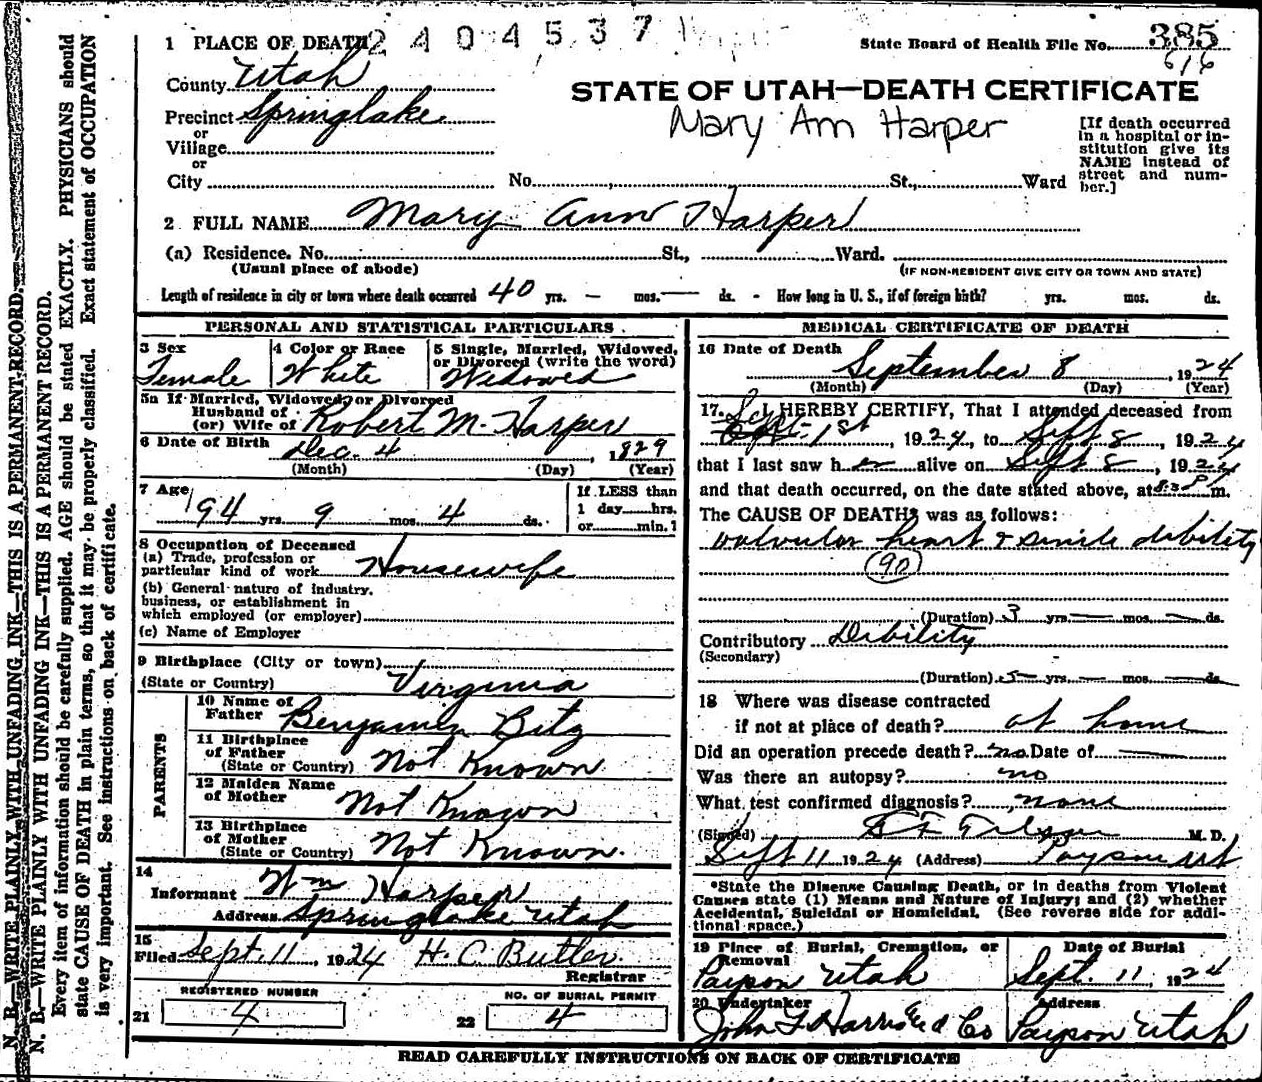 2404537
1 PLACE OF DEATH
State Board of Health File No. 385
616
County Utah
STATE OF UTAH—DEATH CERTIFICATE
Precinct Springlake
Mary Ann Harper
or
Village
or
City No. St., Ward
[If death occurred
in a hospital or in-
stitution give its
NAME instead of
street and num-
ber.]
2 FULL NAME Mary Ann Harper
(a) Residence. No. St., Ward.
(Usual place of abode) (IF NON-RESIDENT GIVE CITY OR TOWN AND STATE)
Length of residence in city or town where death occurred 40 yrs. — mos. — ds. - How long in U. S., if of foreign birth? yrs. mos. ds.
PERSONAL AND STATISTICAL PARTICULARS
3 Sex
Female
4 Color or Race
White
5 Single, Married, Widowed,
or Divorced (write the word)
Widowed
5a If Married, Widowed, or Divorced
Husband of
(or) Wife of Robert M. Harper
6 Date of Birth Dec. 4, 1829
(Month) (Day) (Year)
7 Age
94 yrs. 9 mos. 4 ds.
If LESS than
1 day hrs.
or min.?
8 Occupation of Deceased
(a) Trade, profession or
particular kind of work Housewife
(b) General nature of industry,
business, or establishment in
which employed (or employer)
(c) Name of Employer
9 Birthplace (City or town)
(State or Country) Virginia
PARENTS
10 Name of
Father Benjamin Bitz
11 Birthplace
of Father
(State or Country) Not Known
12 Maiden Name
of Mother Not Known
13 Birthplace
of Mother
(State or Country) Not Known.
14
Informant Wm Harper
Address Springlake Utah
15
Filed Sept. 11, 1924 H. C. Butler.
Registrar
REGISTERED NUMBER
21 4
NO. OF BURIAL PERMIT
22 4
MEDICAL CERTIFICATE OF DEATH
16 Date of Death
September 8, 1924
(Month) (Day) (Year)
17. I HEREBY CERTIFY, That I attended deceased from
Sept. 1st, 1924, to Sept 8, 1924
that I last saw her alive on Sept 8, 1924
and that death occurred, on the date stated above, at 8:30 P m.
The CAUSE OF DEATH* was as follows:
valvular heart & sinile dibility
90
(Duration) 3 yrs. — mos. — ds.
Contributory Dibility
(Secondary)
(Duration) 5 yrs. — mos. — ds.
18 Where was disease contracted
if not at place of death? at home
Did an operation precede death? no Date of —
Was there an autopsy? no
What test confirmed diagnosis? none
(Signed) M. D.
Sept 11 1924 (Address) Payson Ut
*State the Disease Causing Death, or in deaths from Violent
Causes state (1) Means and Nature of Injury; and (2) whether
Accidental, Suicidal or Homicidal. (See reverse side for addi-
tional space.)
19 Place of Burial, Cremation, or
Removal
Payson Utah
Date of Burial
Sept. 11, 1924
20 Undertaker
John F Harris Co
Address
Payson Utah
READ CAREFULLY INSTRUCTIONS ON BACK OF CERTIFICATE
N. B.—WRITE PLAINLY WITH UNFADING INK—THIS IS A PERMANENT RECORD.
N. B.—WRITE PLAINLY WITH UNFADING INK—THIS IS A PERMANENT RECORD.
Every item of information should be carefully supplied. AGE should be stated EXACTLY. PHYSICIANS should
state CAUSE OF DEATH in plain terms, so that it may be properly classified. Exact statement of OCCUPATION
is very important. See instructions on back of certificate.